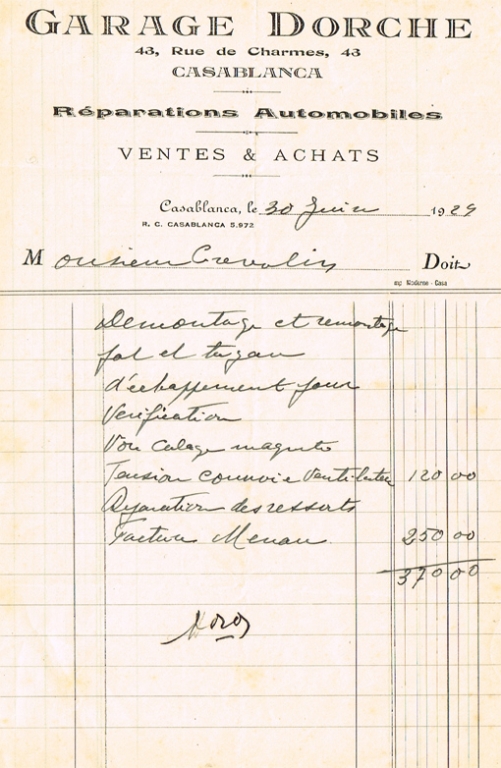 GARAGE DORCHE
43, Rue de Charmes, 43
CASABLANCA
Réparations Automobiles
VENTES & ACHATS
Casablanca, le 30 Juin 1929
R. C. CASABLANCA 5.972
Monsieur Doit
Imp Moderne - Casa
Demontage et remontage
et tuyau
d'echappement pour
Verification
Voir calage magneto
Tension courroie Ventilateur 120 00
Reparation des ressorts
Facture 250 00
370 00